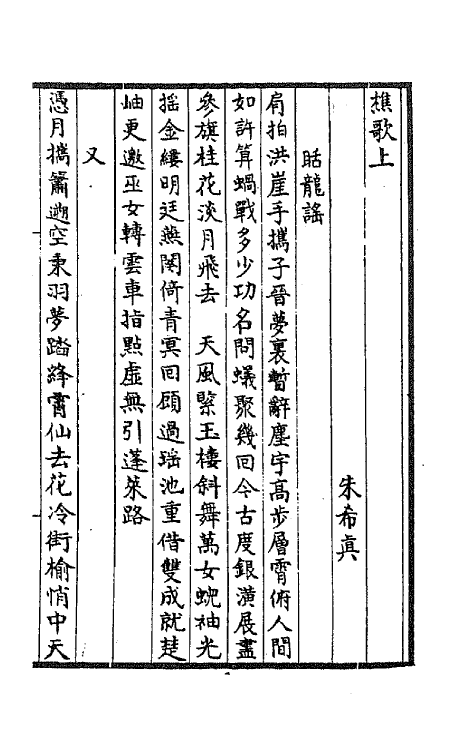 樵歌上
朱希真
聒龍謠
肩拍洪崖手攜子晉夢裏暫辭塵宇高步層霄俯人間
如許算蝸戰多少功名問蟻聚幾回今古度銀潢展盡
參旗桂花淡月飛去　天風緊玉樓斜舞萬女蜺袖光
搖金縷明廷燕闋倚青冥回顧過瑤池重借雙成就楚
岫更邀巫女轉雲車指點虛無引蓬萊路
又
憑月攜簫遡空秉羽夢踏絳霄仙去花冷街榆悄中天